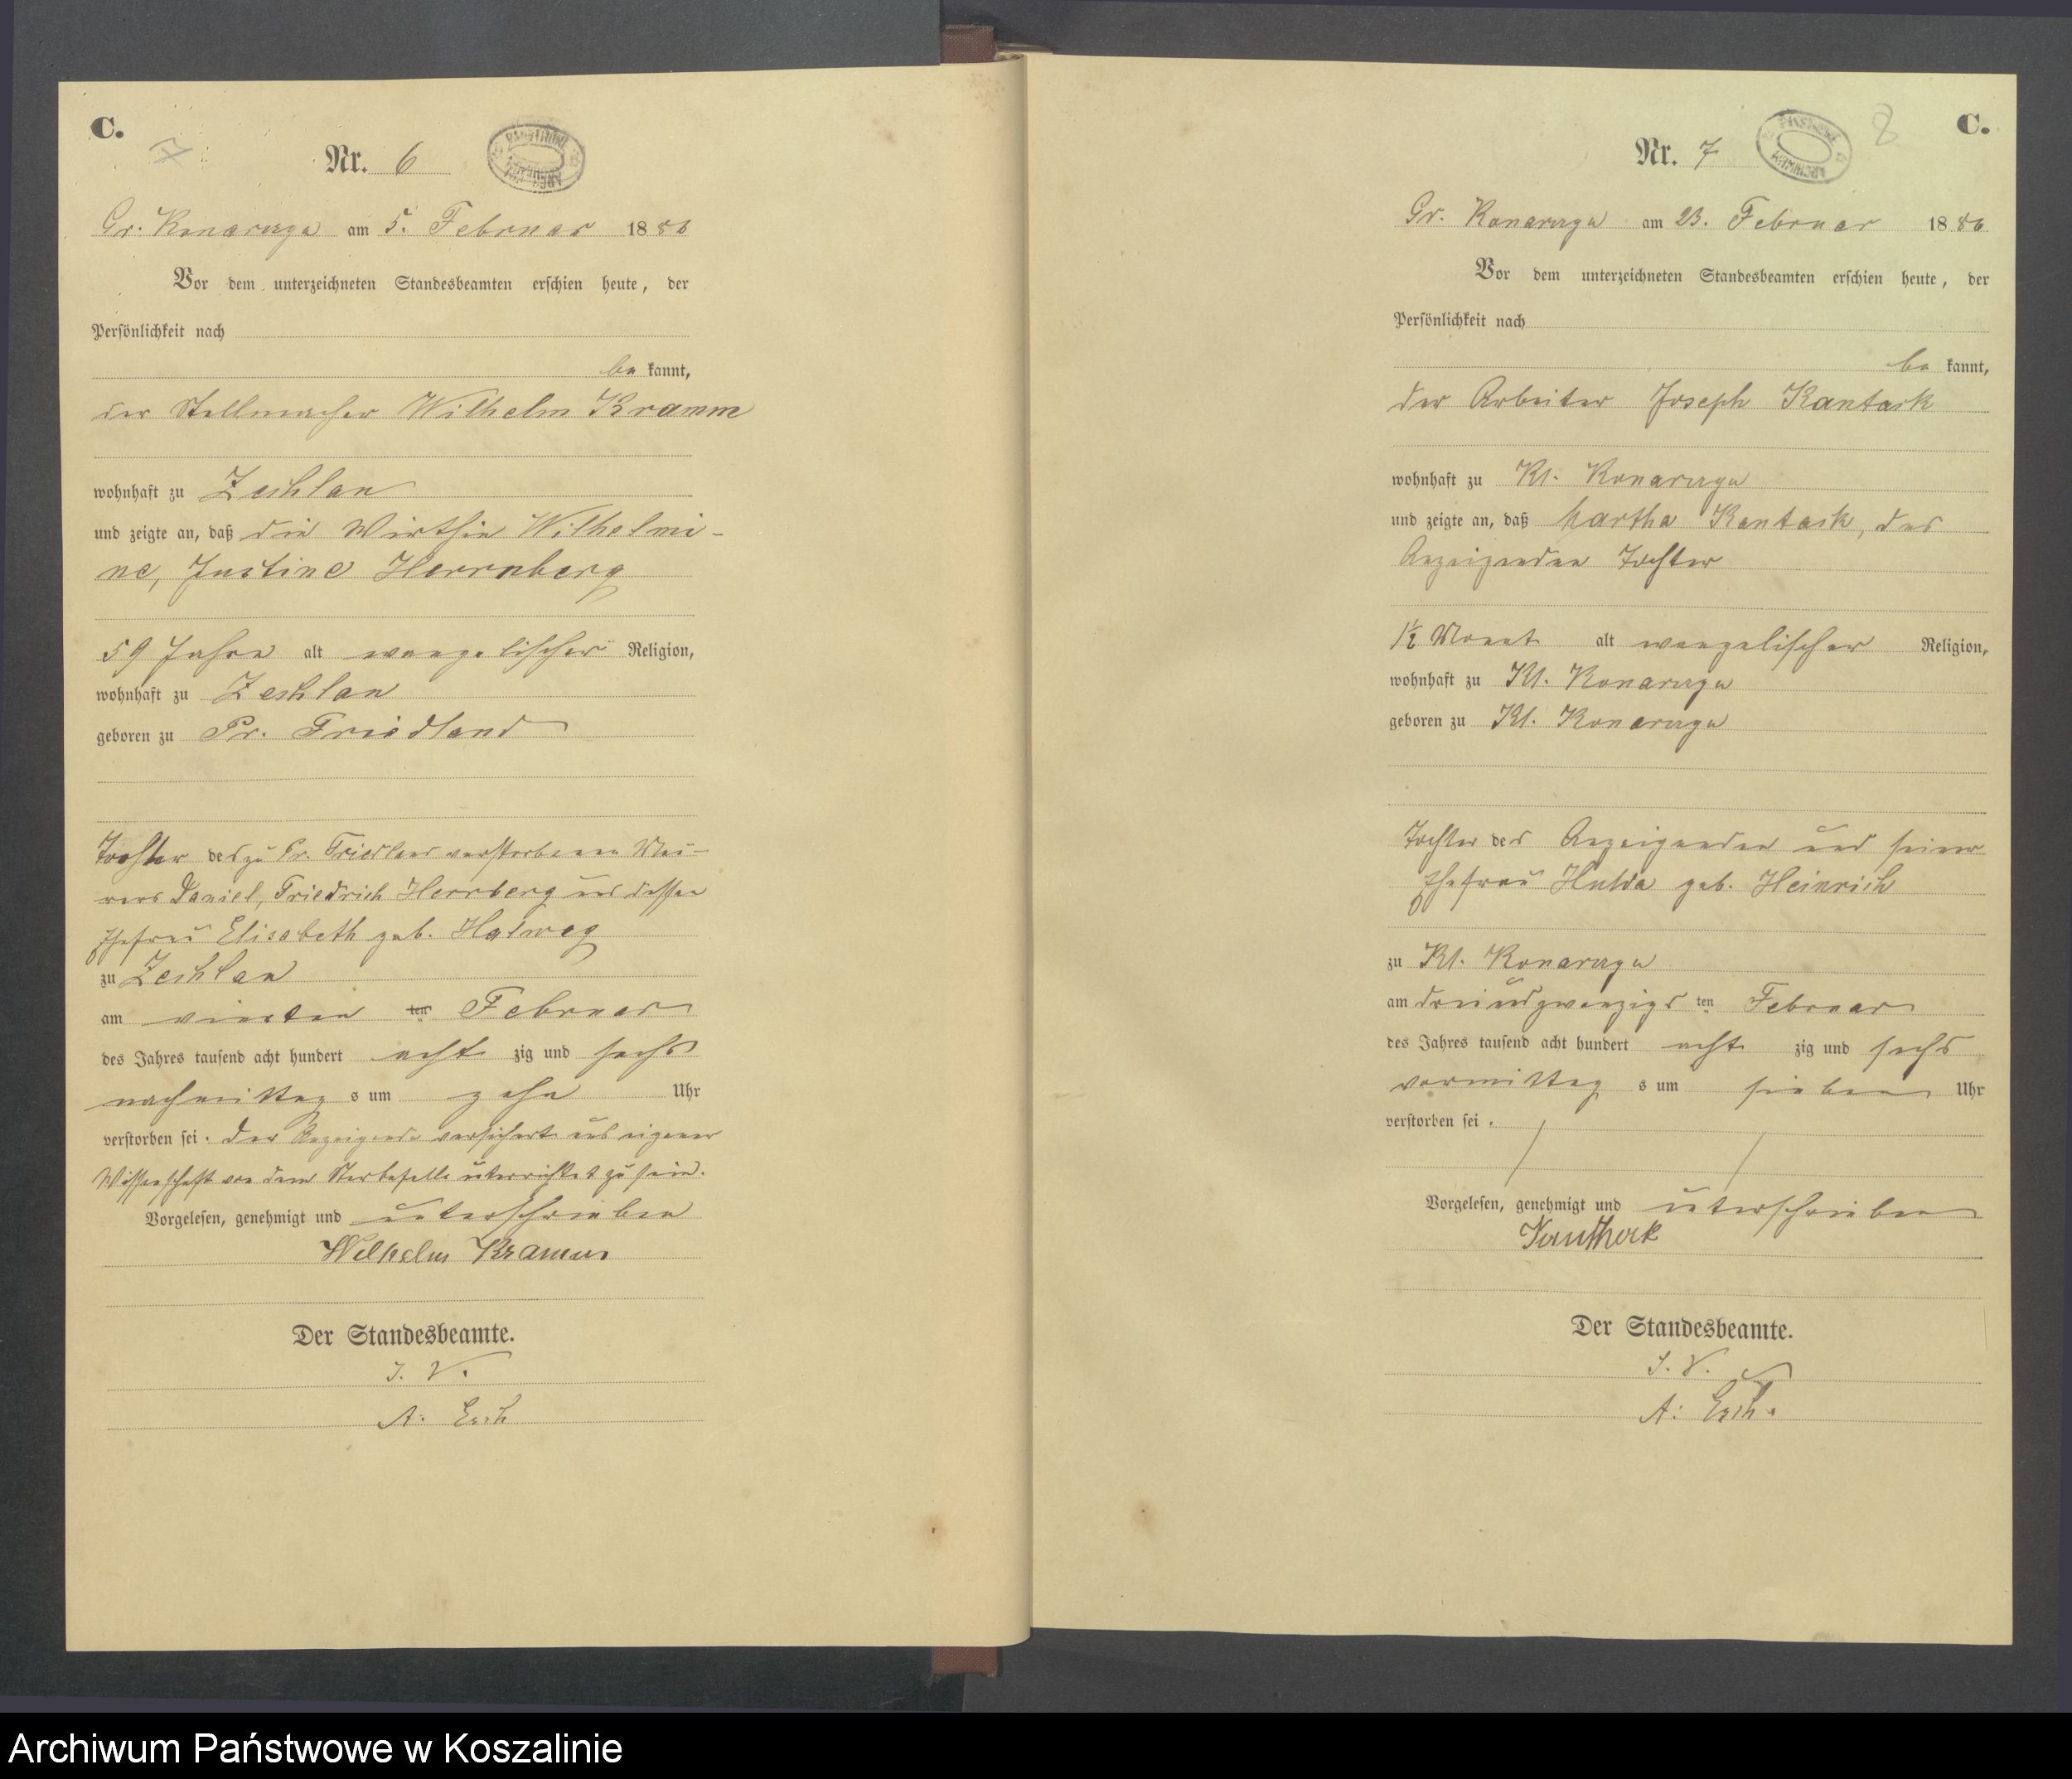 C.
7
Nr. 6
Gr. Konarczyn am 5. Februar 1886
Vor dem unterzeichneten Standesbeamten erschien heute, der
Persönlichkeit nach
be kannt,
der Stellmacher Wilhelm Kramm
wohnhaft zu Zechlau
und zeigte an, daß die Wirthin Wilhelmi-
ne, Justine Herrnberg
59 Jahre alt evangelischer Religion,
wohnhaft zu Zechlau
geboren zu Pr. Friedland
Tochter des zu Pr. Friedland verstorbenen Mau-
rers Daniel, Friedrich Herrberg und dessen
Ehefrau Elisabeth geb.
zu Zechlau
am vierten ten Februar
des Jahres tausend acht hundert acht zig und sechs
nachmittag s um zehn Uhr
verstorben sei. Der Anzeigende versichert aus eigener
Wissenschaft von dem Sterbefalle unterrichtet zu sein.
Vorgelesen, genehmigt und unterschrieben
Wilhelm Kramm
Der Standesbeamte.
I. V.
A.
C.
8
Nr. 7
Gr. Konarczyn am 23. Februar 1886
Vor dem unterzeichneten Standesbeamten erschien heute, der
Persönlichkeit nach
be kannt,
der Arbeiter Joseph Kantack
wohnhaft zu Kl. Konarczyn
und zeigte an, daß Martha Kantack, des
Anzeigenden Tochter
1½ Monat alt evangelischer Religion,
wohnhaft zu Kl. Konarczyn
geboren zu Kl. Konarczyn
Tochter des Anzeigenden und seiner
Ehefrau Hulda geb. Heinrich
zu Kl. Konarczyn
am dreiundzwanzigs ten Februar
des Jahres tausend acht hundert acht zig und sechs
vormittag s um sieben Uhr
verstorben sei.
Vorgelesen, genehmigt und unterschrieben
Der Standesbeamte.
I. V.
A.
Archiwum Państwowe w Koszalinie